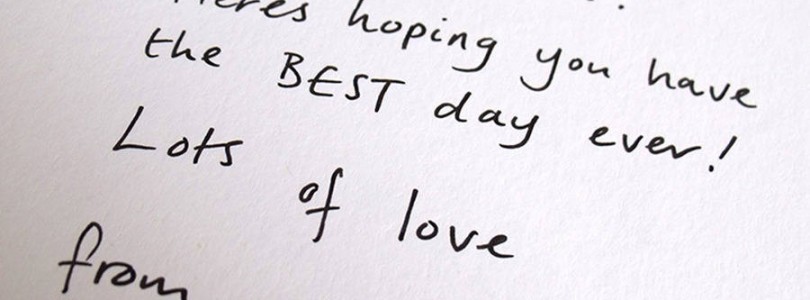 Heres hoping you have
the BEST day ever!
Lots
of love
from